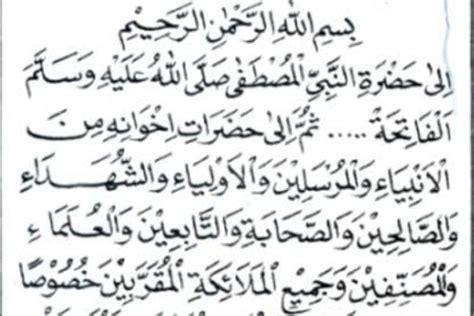 بِسْمِ اللهِ الرَّحْمٰنِ الرَّحِيْمِ
اِلٰى حَضْرَةِ النَّبِيِّ الْمُصْطَفٰى صَلَّى اللهُ عَلَيْهِ وَسَلَّمَ
اَلْفَاتِحَةْ ..... ثُمَّ اِلٰى حَضَرَاتِ اِخْوَانِهِ مِنَ
الْاَنْبِيَاءِ وَالْمُرْسَلِيْنَ وَالْاَوْلِيَاءِ وَالشُّهَدَاءِ
وَالصَّالِحِيْنَ وَالصَّحَابَةِ وَالتَّابِعِيْنَ وَالْعُلَمَاءِ
وَالْمُصَنِّفِيْنَ وَجَمِيْعِ الْمَلَائِكَةِ الْمُقَرَّبِيْنَ خُصُوْصًا